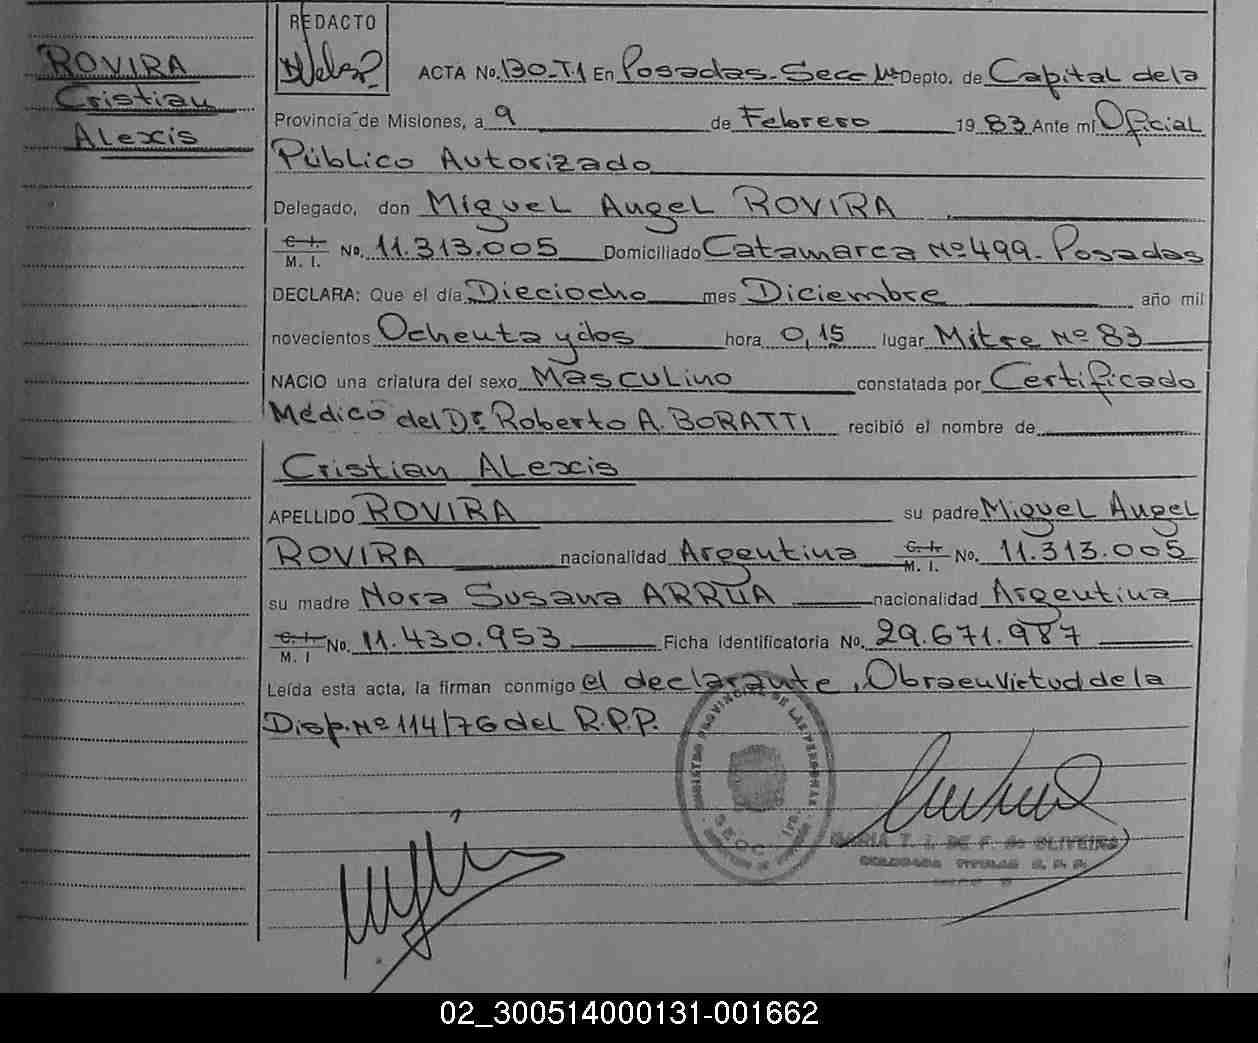 ROVIRA
Cristian
Alexis
REDACTO
ACTA No. 130-T1 En Posadas-Secc 1ª Depto. de Capital de la
Provincia de Misiones, a 9 de Febrero 19 83 Ante mí Oficial
Público Autorizado
Delegado, don Miguel Angel ROVIRA
C. I. M. I. No. 11.313.005 Domiciliado Catamarca Nº 499. Posadas
DECLARA: Que el día Dieciocho mes Diciembre año mil
novecientos Ochenta y dos hora 0,15 lugar Mitre Nº 83
NACIO una criatura del sexo Masculino constatada por Certificado
Médico del Dr. Roberto A. BORATTI recibió el nombre de
Cristian Alexis
APELLIDO ROVIRA su padre Miguel Angel
ROVIRA nacionalidad Argentina C. I. M. I. No. 11.313.005
su madre Nora Susana ARRUA nacionalidad Argentina
C. I. M. I No. 11.430.953 Ficha identificatoria No. 29.671.987
Leída esta acta, la firman conmigo el declarante, Obra en Virtud de la
Disp. Nº 114/76 del R.P.P.
REGISTRO PROVINCIAL DE LAS PERSONAS
SECC. 1ra.
MARIA T. I. DE F. de OLIVEIRA
DELEGADA TITULAR R. P. P.
02_300514000131-001662